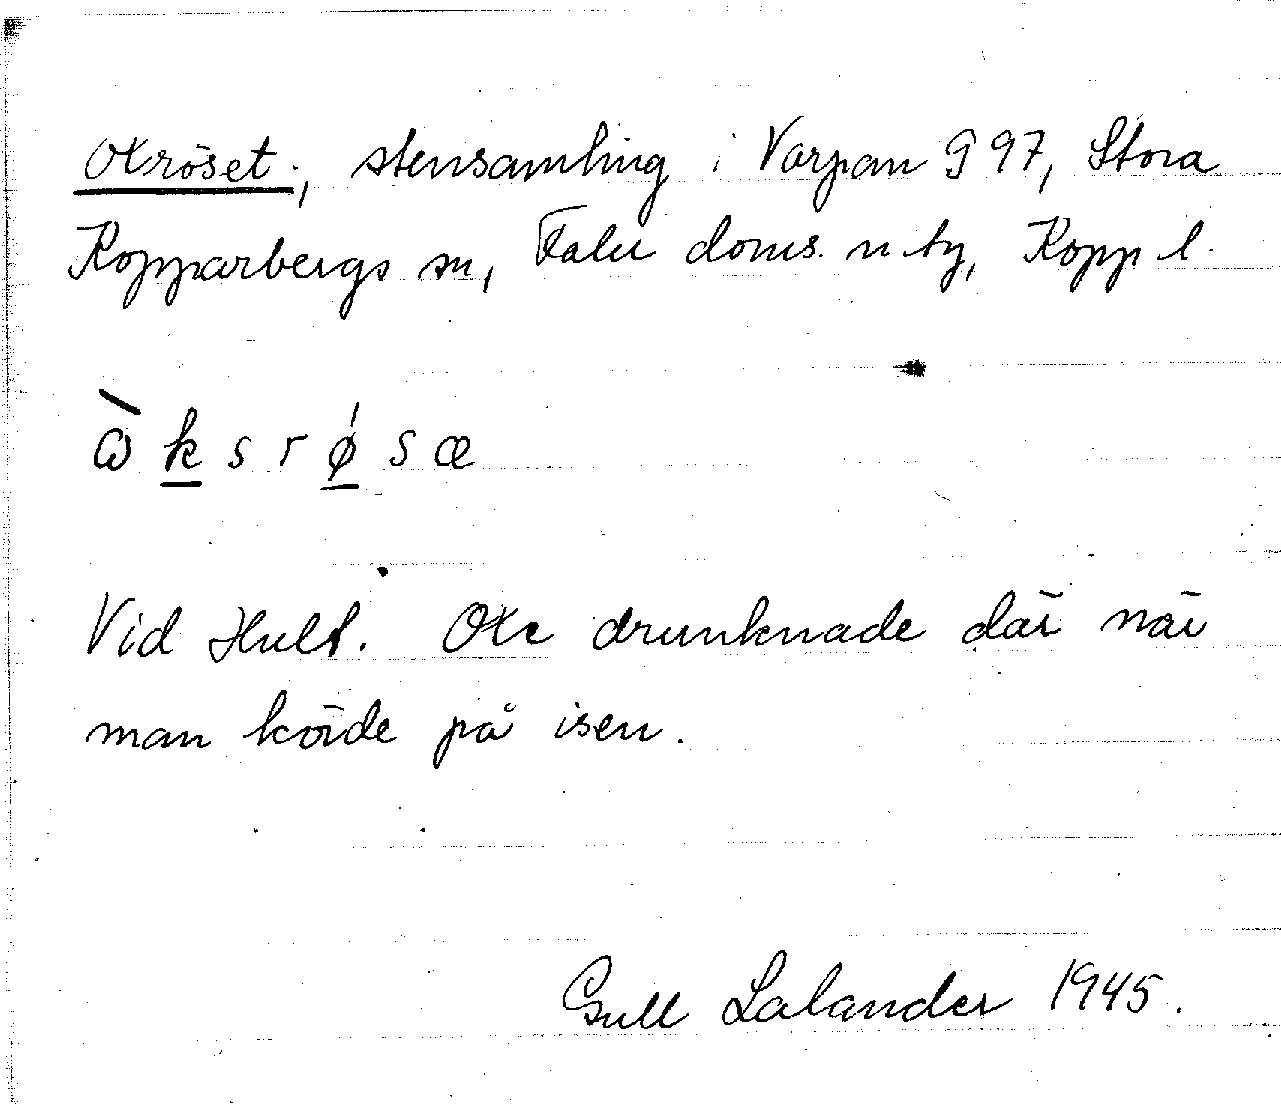 Oxröset, stensamling i Varpan G 97, Stora
Kopparbergs sn, Falu doms. n. tg, Kopp l.
ὼksrø´sæ
Vid Hult. Oxe drunknade där när
man körde på isen.
Gull Lalander 1945.